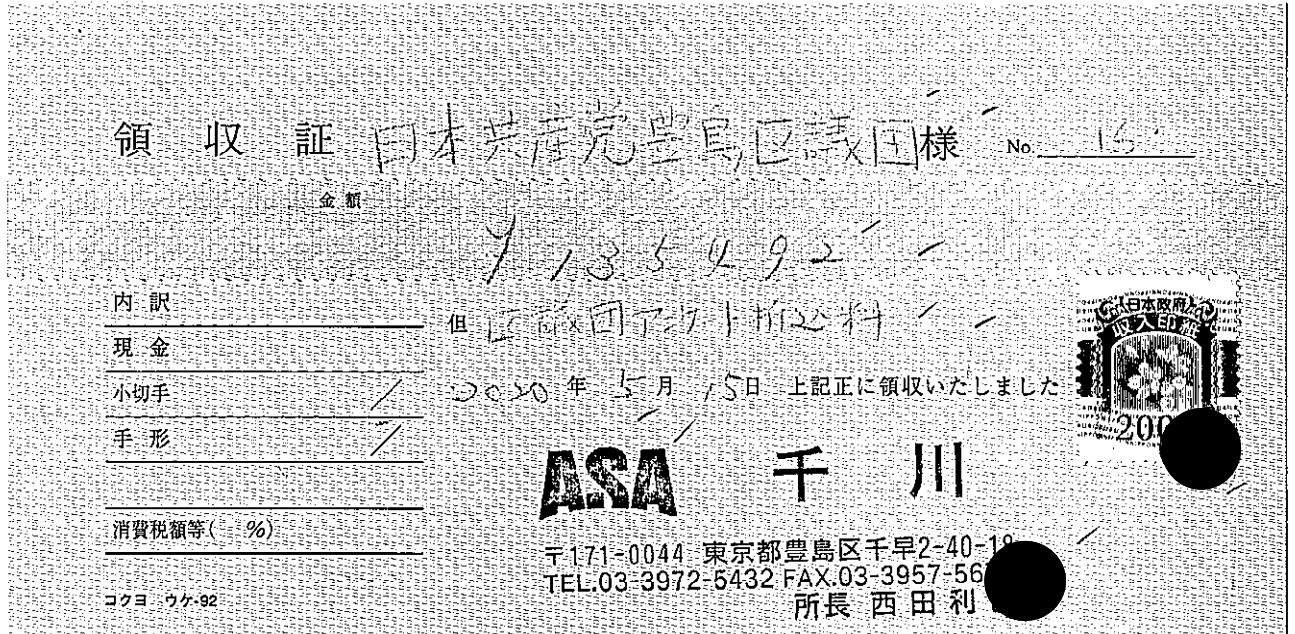 領収証 日本共産党豊島区議団様 No. 15
金額
¥135492
内訳
現金
小切手
手形
消費税額等( %)
コクヨ ウケ-92
但 区議団アンケート折込料
2020年5月15日 上記正に領収いたしました
日本政府
収入印紙
200
ASA 千川
〒171-0044 東京都豊島区千早2-40-18
TEL.03-3972-5432 FAX.03-3957-56
所長 西田利